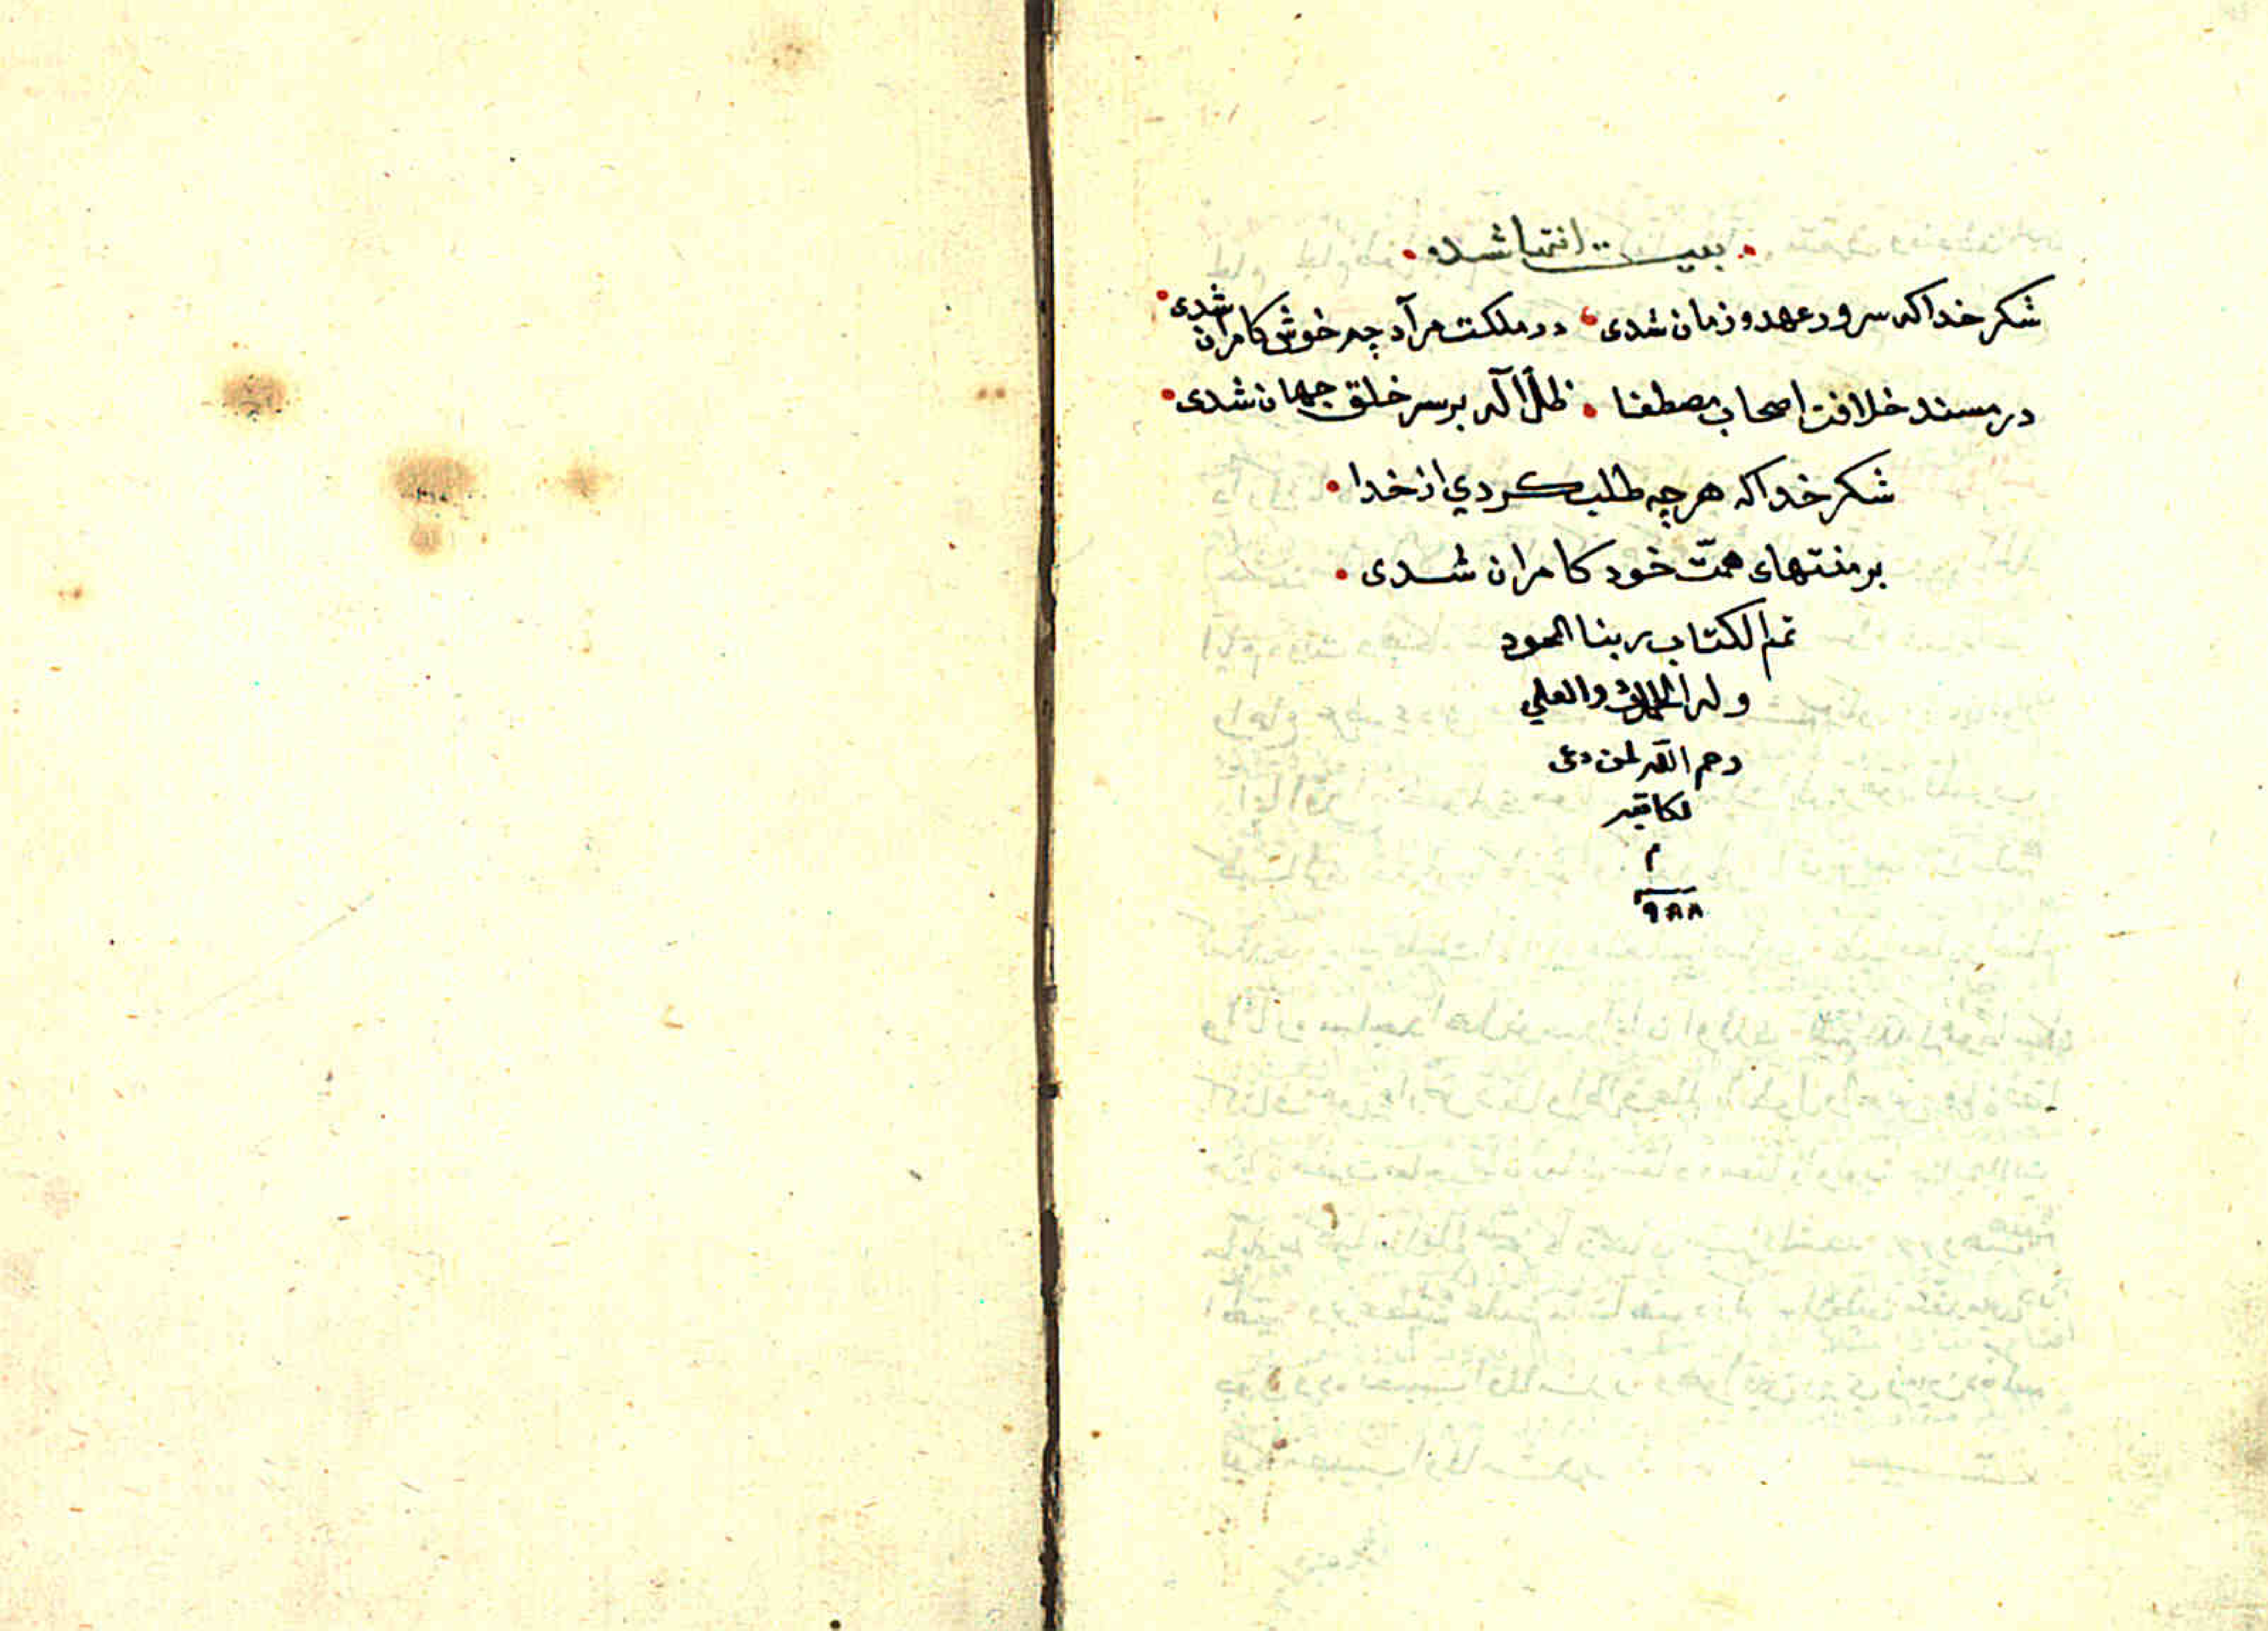 بیت انتها شده
شکر خدا که سرور عهد و زمان شدی در ملکت مرآد چه خوش کامران شدی
در مسند خلافت اصحاب مصطفا ظلّ اله بر سر خلق جهان شدی
شکر خدا که هر چه طلب کردي از خدا
بر منتهای همّت خود کامران شدی
تم الکتاب ربنا المحمود
وله والعلي
رحم الله لمن دعى
لکاتبه
م
٩٨٨